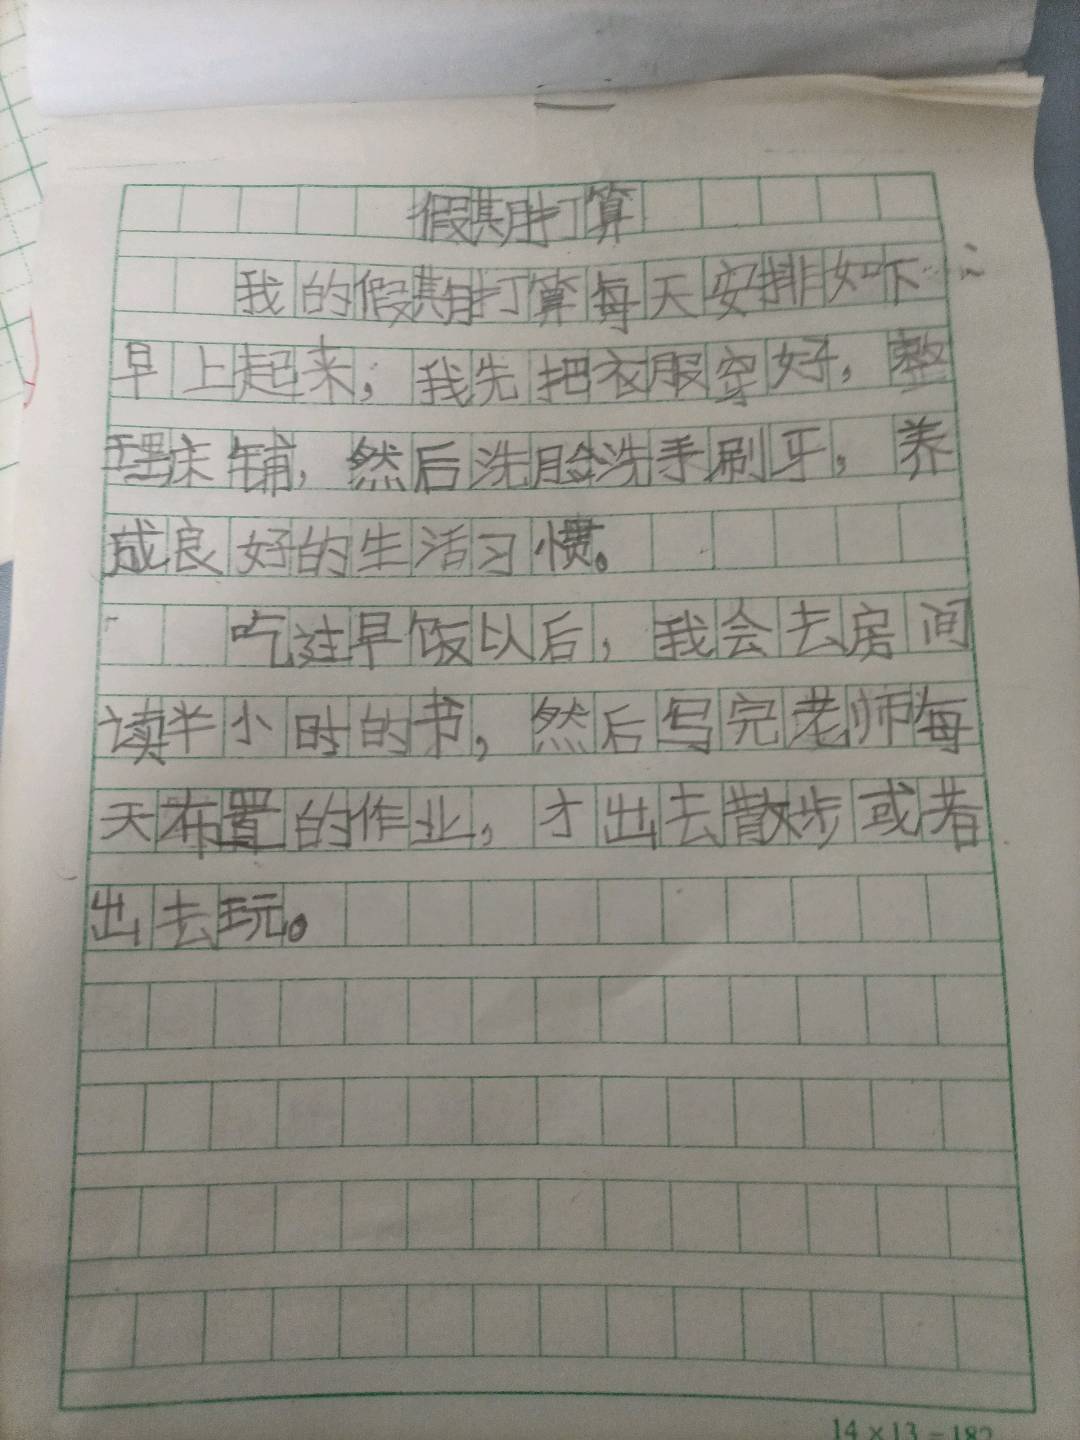 假期打算
我的假期打算每天安排如下：
早上起来，我先把衣服穿好，整
理床铺，然后洗脸洗手刷牙，养
成良好的生活习惯。
吃过早饭以后，我会去房间
读半小时的书，然后写完老师每
天布置的作业，才出去散步或者
出去玩。
14×13=182